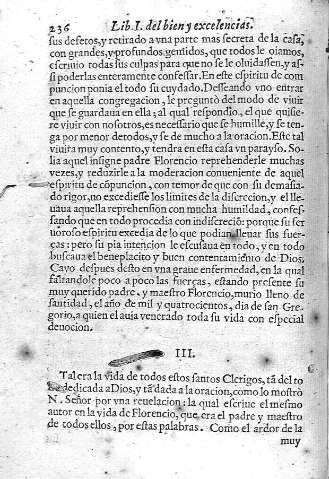 236 Lib. I. del bien y excelencias.
sus defetos, y retirado a vna parte mas secreta de la casa,
con grandes, y profundos gemidos, que todos le oiamos,
escriuio todas sus culpas para que no se le oluidassen, y as-
si poderlas enteramente confessar. En este espiritu de com
puncion ponia el todo su cuydado. Desseando vno entrar
en aquella congregacion, le preguntò del modo de viuir
que se guardaua en ella; al qual respondio, el que quisie-
re viuir con nosotros, es necessario que se humille, y se ten
ga por menor de todos, y se de mucho a la oracion. Este tal
viuira muy contento, y tendra en esta casa vn parayso. So-
lia aquel insigne padre Florencio reprehenderle muchas
vezes, y reduzirle a la moderacion conueniente de aquel
espiritu de cōpuncion, con temor de que con su demasia-
do rigor, no excediesse los limites de la discrecion, y el lle-
uaua aquella reprehension con mucha humildad, confes-
sando que en todo procedia con indiscreciō: porque su fer
uoroso espiritu excedia de lo que podian lleuar sus fuer-
ças: pero su pia intencion le escusaua en todo, y en todo
buscaua el beneplacito y buen contentamiento de Dios.
Cayo despues desto en vna graue enfermedad, en la qual
faltandole poco a poco las fuerças, estando presente su
muy querido padre, y maestro Florencio, murio lleno de
santidad, el año de mil y quatrocientos, dia de san Gre-
gorio, a quien el auia venerado toda su vida con especial
deuocion.
III.
Tal era la vida de todos estos santos Clerigos, tā del to
dedicada a Dios, y tā dada a la oracion, como lo mostrò
N. Señor por vna reuelacion: la qual escriue el mesmo
autor en la vida de Florencio, que era el padre y maestro
de todos ellos, por estas palabras. Como el ardor de la
muy